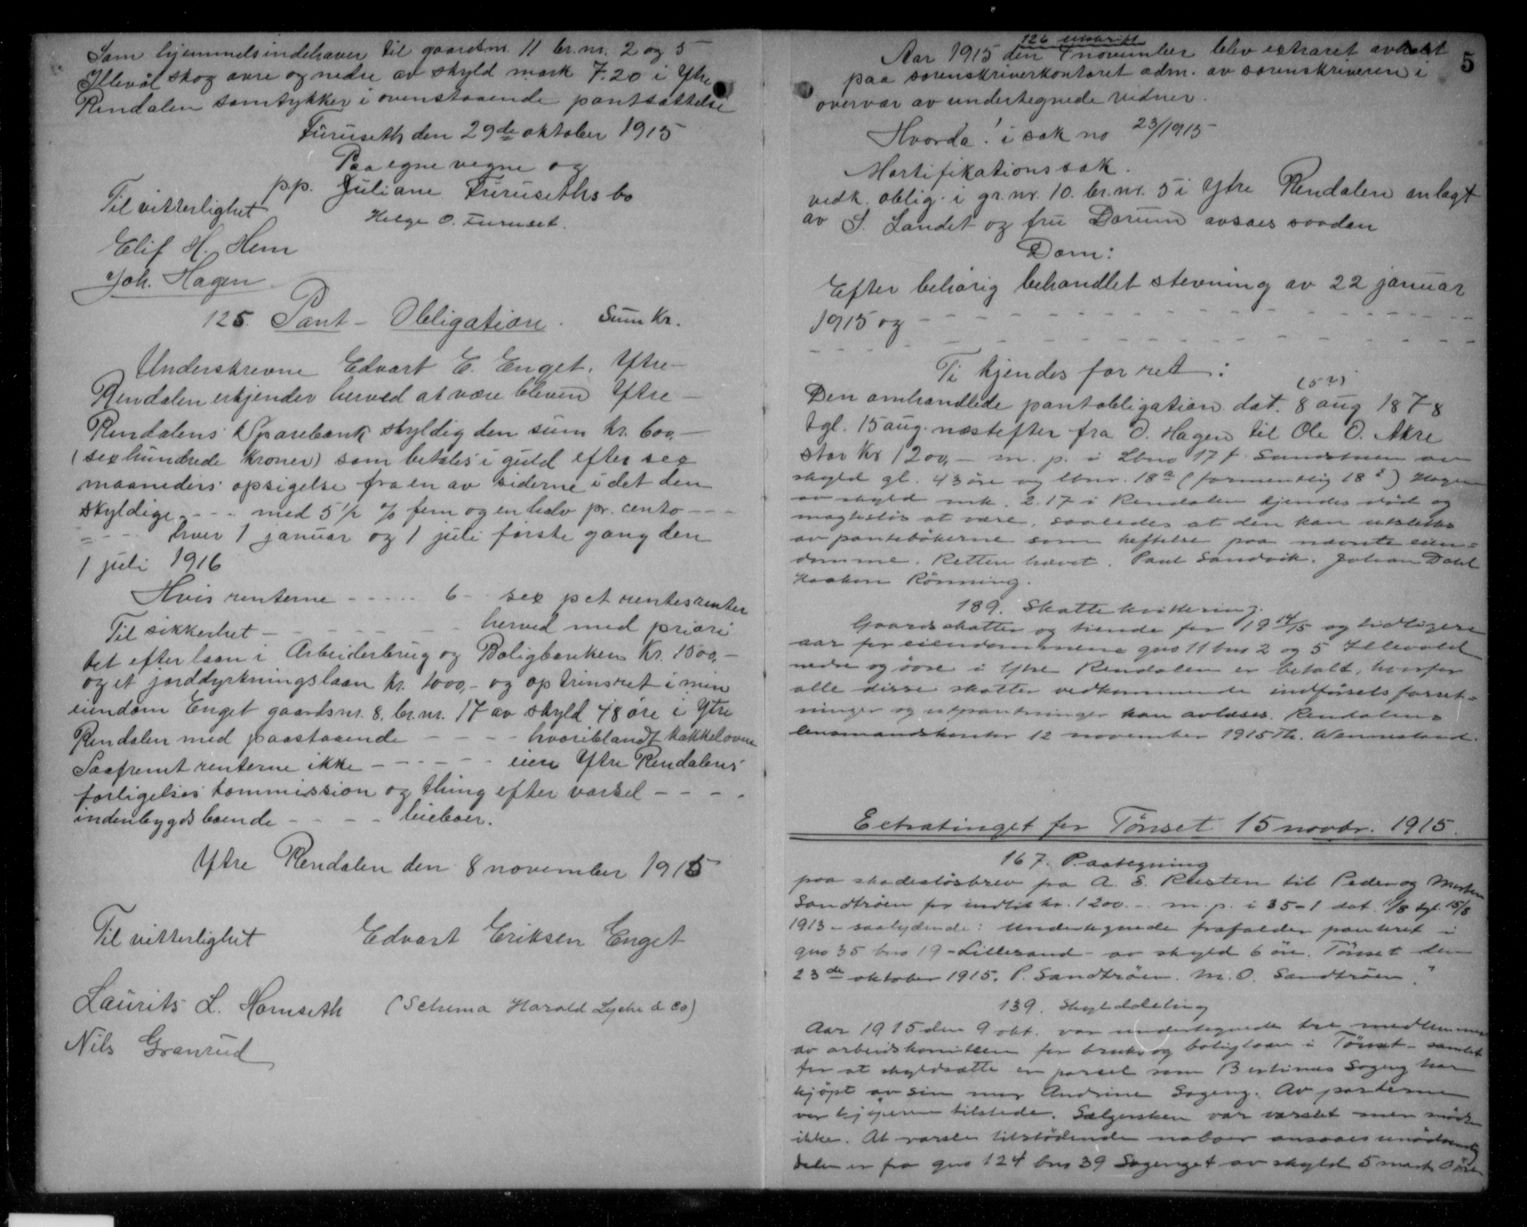 Som hjemmelsindehaver til gaardsnr. 11 br.nr. 2 og 5
Illevål skog øvre og nedre av skyld mark 7.20 i Ytre
Rendalen samtykker i ovenstaaende pantsættelse
Furuseth den 29de oktober 1915
Paa egne vegne og
pp. Juliane Furuseths bo
Til vitterlighet
Helge O. Furuset.
Elif H. Hem
Joh. Hagen
125. Pant-Obligation. Sum Kr.
Underskrevne Edvart E. Enget, Ytre-
Rendalen erkjender herved at være bleven Ytre-
Rendalens Sparebank skyldig den sum kr. 600,-
(sexhundrede kroner) som betales i guld efter sex
maaneders opsigelse fra en av siderne i det den
skyldige - - - med 5 1/2 % fem og en halv pr. cento - - -
- - - hver 1 januar og 1 juli første gang den
1 juli 1916
Hvis renterne - - - - - 6 - sex pct rentesrenter
Til sikkerhet - - - - - - herved med priori
tet efter laan i Arbeiderbrug og Boligbanken kr. 1500,-
og et jorddyrkningslaan kr. 1000,- og optrinsret i min
eiendom Enget gaardsnr. 8, br.nr. 17 av skyld 48 øre i Ytre
Rendalen med paastaaende - - - - hvoriblandt kakkelovne
Saafremt renterne ikke - - - - - - eien Ytre Rendalens
forligelses kommission og thing efter varsel - - - -
indenbygds boende - - - - leieboer.
Ytre Rendalen den 8 november 1915
Til vitterlighet Edvart Eriksen Enget
Laurits L. Hornseth (Schema Harald Lyche & Co)
Nils Granrud
5
126 utskrift
Aar 1915 den 4 november blev extraret avholdt
paa sorenskriverkontoret adm. av sorenskriveren i
overvær av undertegnede vidner.
Hvorda! i sak no 23/1915
Mortifikationssak.
vedk. oblig. i gr.nr. 10. br.nr. 5 i Ytre Rendalen anlagt
av S. Landet og fru Dørum avsaes saadan
Dom:
Efter behørig behandlet stevning av 22 januar
1915 og - - - - - - - - - - - -
Ti kjendes for ret:
Den omhandlede pantobligation dat. 8 aug 1878
tgl. 15 aug. næstefter fra O. Hagen til Ole O. Akre
stor Kr 1200,- m. p. i Lbno 17 f. Sundstuen av
skyld gl. 43 øre og lbnr. 18a (formentlig 18 ) Hagen
av skyld mk. 2.17 i Rendalen kjendes død og
magtesløs at være, saaledes at den kan utslettes
av pantebökerne som heftelse paa nævnte eien-
domme. Retten hævet. Paul Sandvik. Johan Dahl
Haakon Rönning.
189. Skattekvittering.
Gaardskatter og tiende for 1914/15 og tidligere
aar for eiendommene gno 11 bno 2 og 5 Illevold
nedre og övre i Ytre Rendalen er betalt, hvorfor
alle disse skatter vedkommende indförsels forret-
ninger og utpantninger kan avlæses. Rendalens
lensmandskontor 12 november 1915
Extratinget for Tönset 15 novbr. 1915.
167. Paategning
paa skadeslösbrev fra A. E. Rusten til Peder og Morten
Sandtröen for indtil kr. 1200.- m. p. i 35-1 dat. tgl. 15/8
1913 - saalydende: Undertegnede frafalder panteret i
gno 35 bno 19 - Lillerand - av skyld 6 öre. Tönset den
23de oktober 1915. P. Sandtröen. M. O. Sandtröen."
139. Skylddeling
Aar 1915 den 9 okt. var undertegnede tre medlemmer
av arbeidskomiteen for bruks og boliglaan i Tönset - samlet
for at skyldsætte en parsel som Bertinus Sageng har
kjöpt av sin mor Andrine Sageng. Av parterne
var kjöperen tilstede. Sælgersken var varslet men mötte
ikke. At varsle tilstödende naboer ansaaes unödvendig
Delen er fra gno 124 bno 39 Sagenget av skyld 5 mark 0 öre